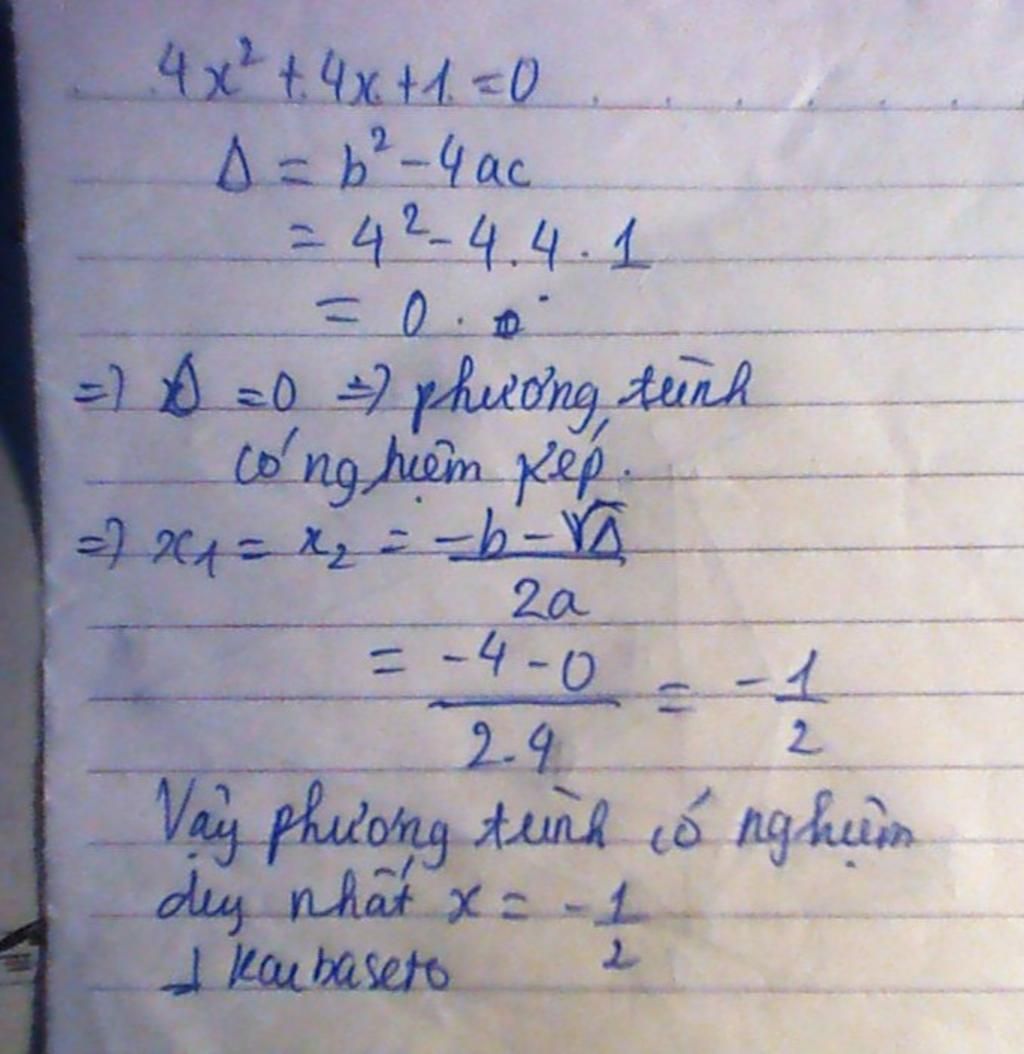 4x² + 4x + 1 = 0
Δ = b² - 4ac
= 4² - 4.4.1
= 0.
=> Δ = 0 => phương trình
có nghiệm kép.
=> x₁ = x₂ = (-b - √Δ) / 2a
= (-4 - 0) / 2.4 = -1/2
Vậy phương trình có nghiệm
duy nhất x = -1/2